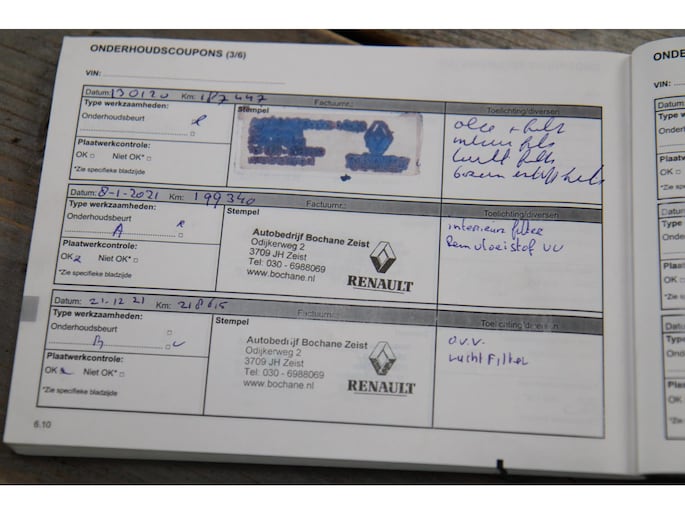 ONDERHOUDSCOUPONS (3/6)
VIN:
Datum: 130120 Km: 187447 Factuurnr.: Toelichting/diversen
Type werkzaamheden:
Onderhoudsbeurt
Plaatwerkcontrole:
OK Niet OK*
*Zie specifieke bladzijde
Stempel
olie + filt
Datum: 8-1-2021 Km: 199340 Factuurnr.: Toelichting/diversen
Type werkzaamheden:
Onderhoudsbeurt
A
Plaatwerkcontrole:
OK Niet OK*
*Zie specifieke bladzijde
Stempel
Autobedrijf Bochane Zeist
Odijkerweg 2
3709 JH Zeist
Tel: 030 - 6988069
www.bochane.nl
RENAULT
interieur filter
Remvloeistof VV
Datum: 21-12 21 Km: 218615 Factuurnr.: Toelichting/diversen
Type werkzaamheden:
Onderhoudsbeurt
B
Plaatwerkcontrole:
OK Niet OK*
*Zie specifieke bladzijde
Stempel
Autobedrijf Bochane Zeist
Odijkerweg 2
3709 JH Zeist
Tel: 030 - 6988069
www.bochane.nl
RENAULT
O.V.V.
Luchtfilter
6.10
ONDE
VIN:
Datum
Type w
Onderh
Plaatw
OK
*Zie spe
Datum
Type
Onder
Plaat
OK
*Zie
Datu
Type
Onde
Plaa
OK
*Zie